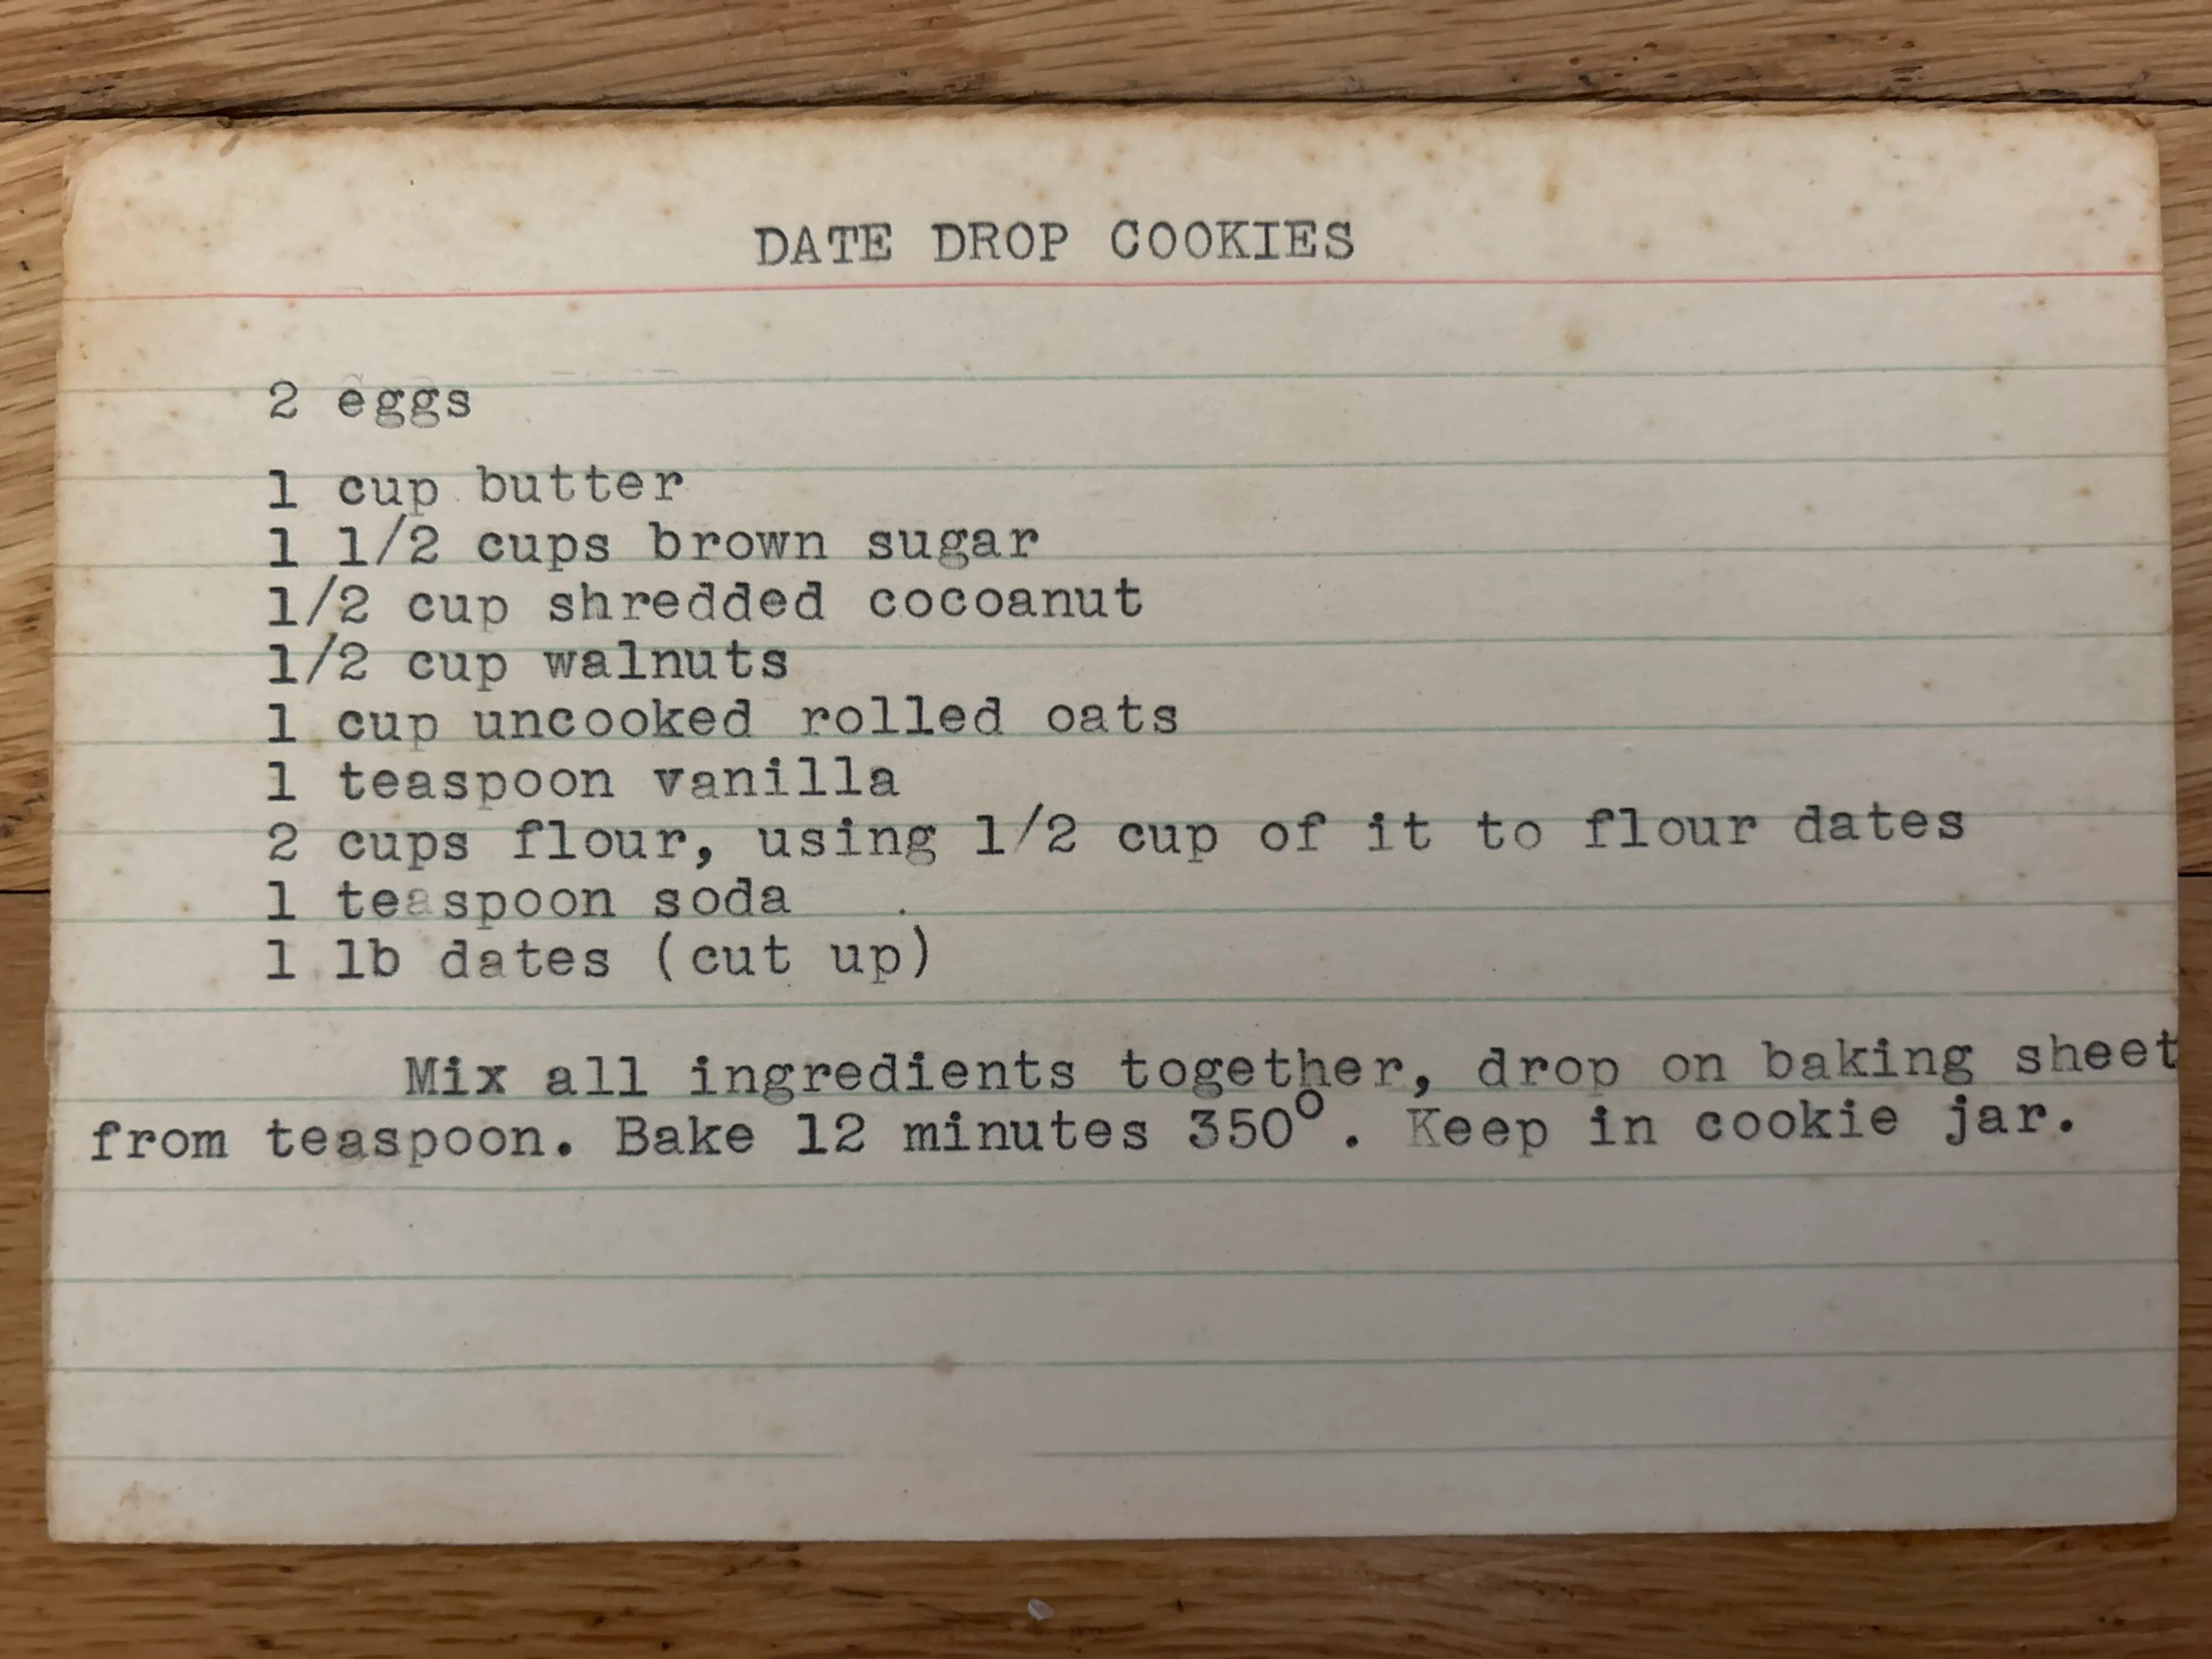 DATE DROP COOKIES
2 eggs
1 cup butter
1 1/2 cups brown sugar
1/2 cup shredded cocoanut
1/2 cup walnuts
1 cup uncooked rolled oats
1 teaspoon vanilla
2 cups flour, using 1/2 cup of it to flour dates
1 teaspoon soda
1 lb dates (cut up)
Mix all ingredients together, drop on baking sheet
from teaspoon. Bake 12 minutes 350°. Keep in cookie jar.